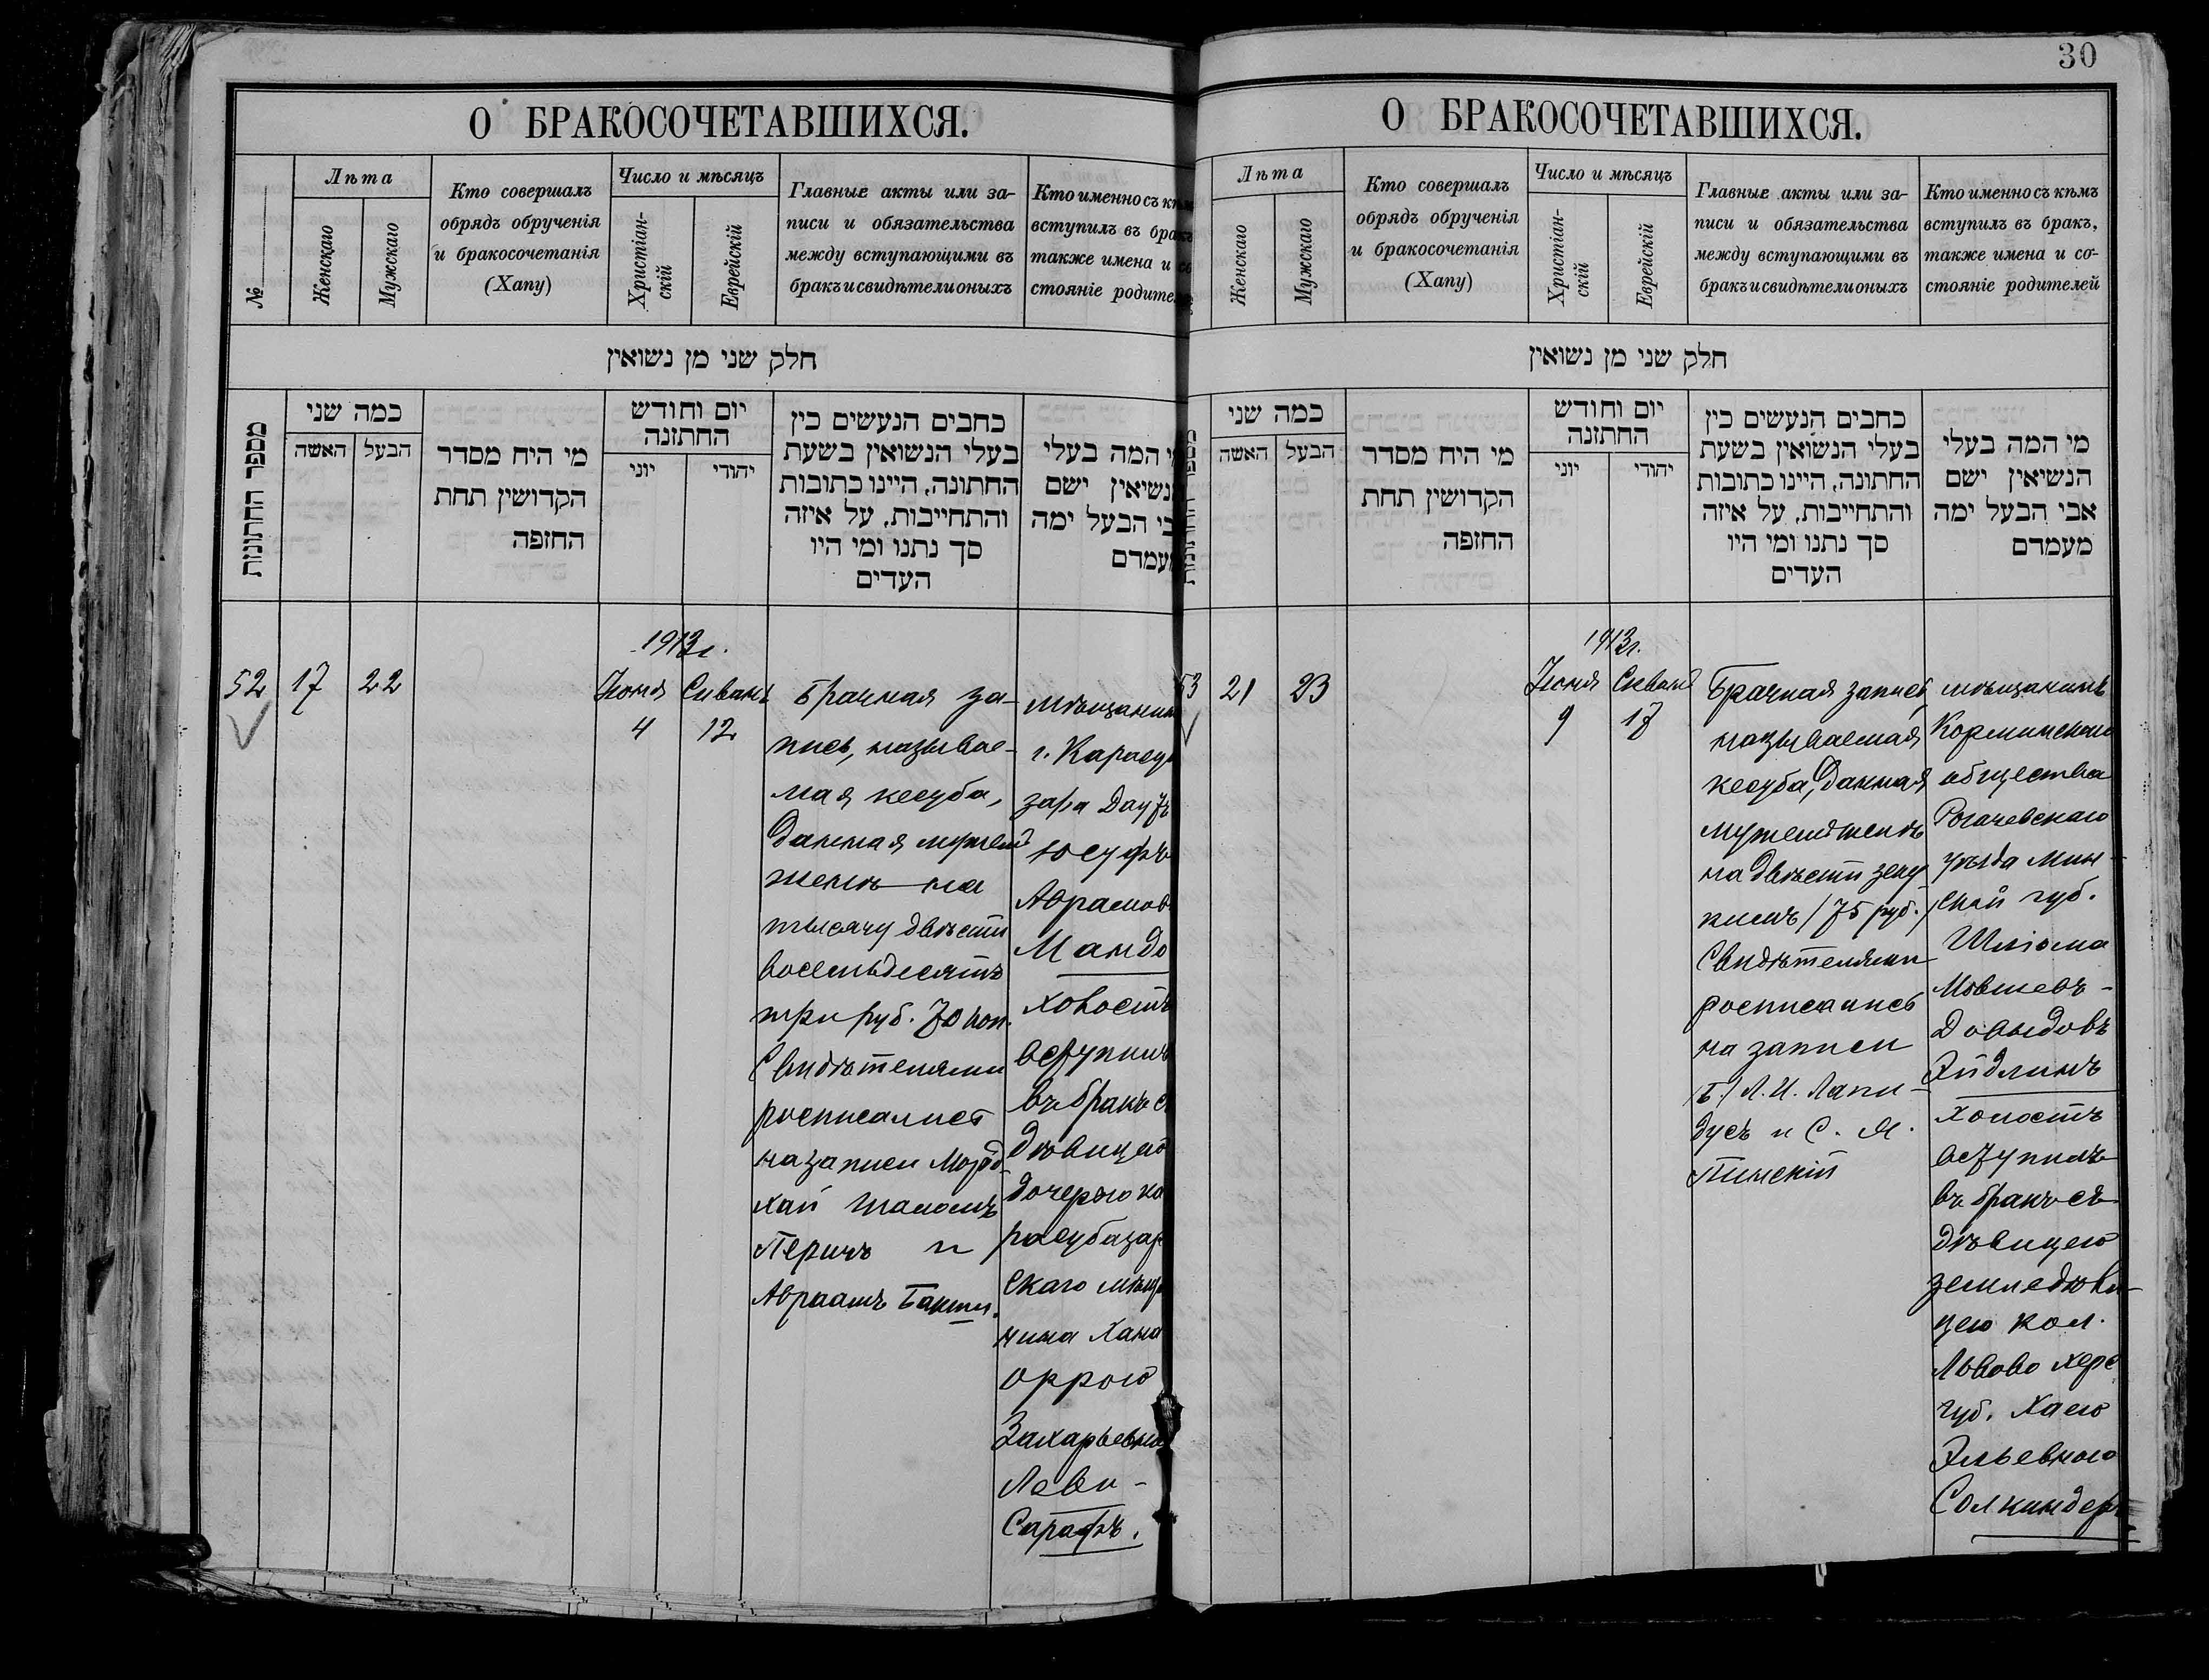 О БРАКОСОЧЕТАВШИХСЯ.
№
Лѣта
Женскаго
Мужскаго
Кто совершалъ
обрядъ обрученія
и бракосочетанія
(Хапу)
Число и мѣсяцъ
Христіан-
скій
Еврейскій
Главные акты или за-
писи и обязательства
между вступающими въ
бракъ и свидѣтели оныхъ
Кто именно съ кѣмъ
вступилъ въ бракъ
также имена и со
стояніе родителей
חלק שני מן נשואין
מספר החתונות
כמה שני
האשה
הבעל
מי היח מסדר
הקדושין תחת
החזפה
יום וחודש
החתזנה
יוני
יהודי
כחבים הנעשים כין
בעלי הנשואין בשעת
החתונה, היינו כתובות
והתחייבות, על איזה
סך נתנו ומי היו
העדים
המה בעלי
נשיאין ישם
בי הבעל ימה
מעמדם
52
17
22
1913 г.
Іюня
4
Сиванъ
12
Брачная за-
пись, называе-
мая кесуба,
данная мужемъ
женѣ на
тысячу двѣсти
восемьдесятъ
три руб. 70 коп.
Свидѣтелями
росписались
на записи Морд-
хай Шаломъ
Перичъ и
Авраамъ Бакши.
мѣщанинъ
г. Карасуба
зара Даудъ
Юсуфъ
Аврамовъ
Мандо
холостъ
вступилъ
въ бракъ съ
дѣвицею
дочерью ка
расубазар
скаго мѣща
нина Хана
Оррою
Захарьевною
Леви-
Сарафъ.
30
О БРАКОСОЧЕТАВШИХСЯ.
Лѣта
Женскаго
Мужскаго
Кто совершалъ
обрядъ обрученія
и бракосочетанія
(Хапу)
Число и мѣсяцъ
Христіан-
скій
Еврейскій
Главные акты или за-
писи и обязательства
между вступающими въ
бракъ и свидѣтели оныхъ
Кто именно съ кѣмъ
вступилъ въ бракъ,
также имена и со-
стояніе родителей
חלק שני מן נשואין
כמה שני
האשה
הבעל
מי היח מסדר
הקדושין תחת
החזפה
יום וחודש
החתזנה
יוני
יהודי
כחבים הנעשים כין
בעלי הנשואין בשעת
החתונה, היינו כתובות
והתחייבות, על איזה
סך נתנו ומי היו
העדים
מי המה בעלי
הנשיאין ישם
אבי הבעל ימה
מעמדם
53
21
23
1913 г.
Іюня
9
Сиванъ
17
Брачная запись
называемая
кесуба, данная
мужемъ женѣ
на двѣсти зеку
кимъ / 75 руб. /
Свидѣтелями
росписались
на записи
/Б./ Л. И. Лапи-
дусъ и С. Я.
Пинскій
мѣщанинъ
Кормянскаго
общества
Рогачевскаго
уѣзда Мин-
ской губ.
Шлiома
Мовшевъ-
Довыдовъ
Эйдлинъ
холостъ
вступилъ
въ бракъ съ
дѣвицею
земледѣли-
цею кол.
Львово Херс
губ. Хаею
Эльевною
Солкиндеръ